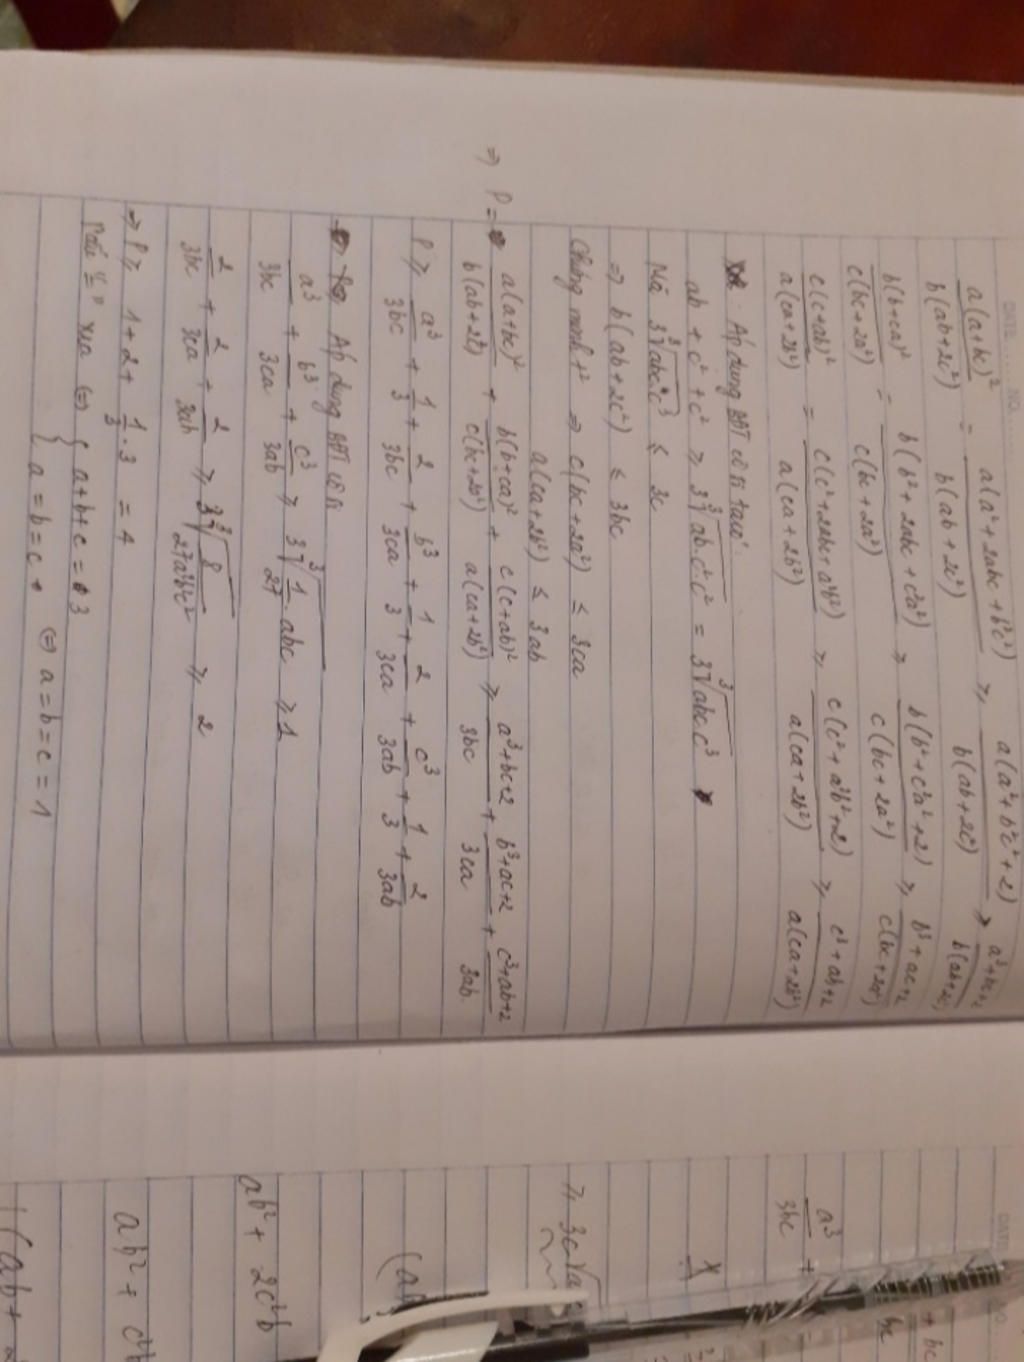 DATE NO.
a(a+bc)² / b(ab+2c²) = a(a²+2abc+b²c²) / b(ab+2c²) ≥ a(a²+b²c²+2) / b(ab+2c²) ≥ a³+bc+2 / b(ab+2c²)
b(b+ca)² / c(bc+2a²) = b(b²+2abc+c²a²) / c(bc+2a²) ≥ b(b²+c²a²+2) / c(bc+2a²) ≥ b³+ac+2 / c(bc+2a²)
c(c+ab)² / a(ca+2b²) = c(c²+2abc+a²b²) / a(ca+2b²) ≥ c(c²+a²b²+2) / a(ca+2b²) ≥ c³+ab+2 / a(ca+2b²)
Áp dụng BĐT cô si
ab + c² + c² ≥ 3∛ab.c²c² = 3∛abc.c³
Mà 3∛abc c³ ≤ 3c
⇒ b(ab+2c²) ≤ 3bc
Chứng minh t² ⇒ c(bc+2a²) ≤ 3ca
a(ca+2b²) ≤ 3ab
⇒ P = a(a+bc)² / b(ab+2c²) + b(b+ca)² / c(bc+2a²) + c(c+ab)² / a(ca+2b²) ≥ a³+bc+2 / 3bc + b³+ac+2 / 3ca + c³+ab+2 / 3ab
P ≥ a³/3bc + 1/3 + 2/3bc + b³/3ca + 1/3 + 2/3ca + c³/3ab + 1/3 + 2/3ab
Áp dụng BĐT cô si
a³/3bc + b³/3ca + c³/3ab ≥ 3∛1/27.abc ≥ 1
2/3bc + 2/3ca + 2/3ab ≥ 3∛8/27a²b²c² ≥ 2
⇒ P ≥ 1+2+1/3.3 = 4
Dấu "=" xra ⇔ { a+b+c = 3
a=b=c ⇔ a=b=c=1
a³/3bc +
≥ 3c
(ab
ab² + 2c²b
ab² +
(ab +